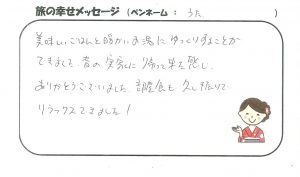 旅の幸せメッセージ (ペンネーム： うた )
美味しいごはんと温かいお湯にゆっくりすることが
できました 昔の実家に帰って来た感じ
ありがとうございました 部屋食も久し振りで
リラックスできました！